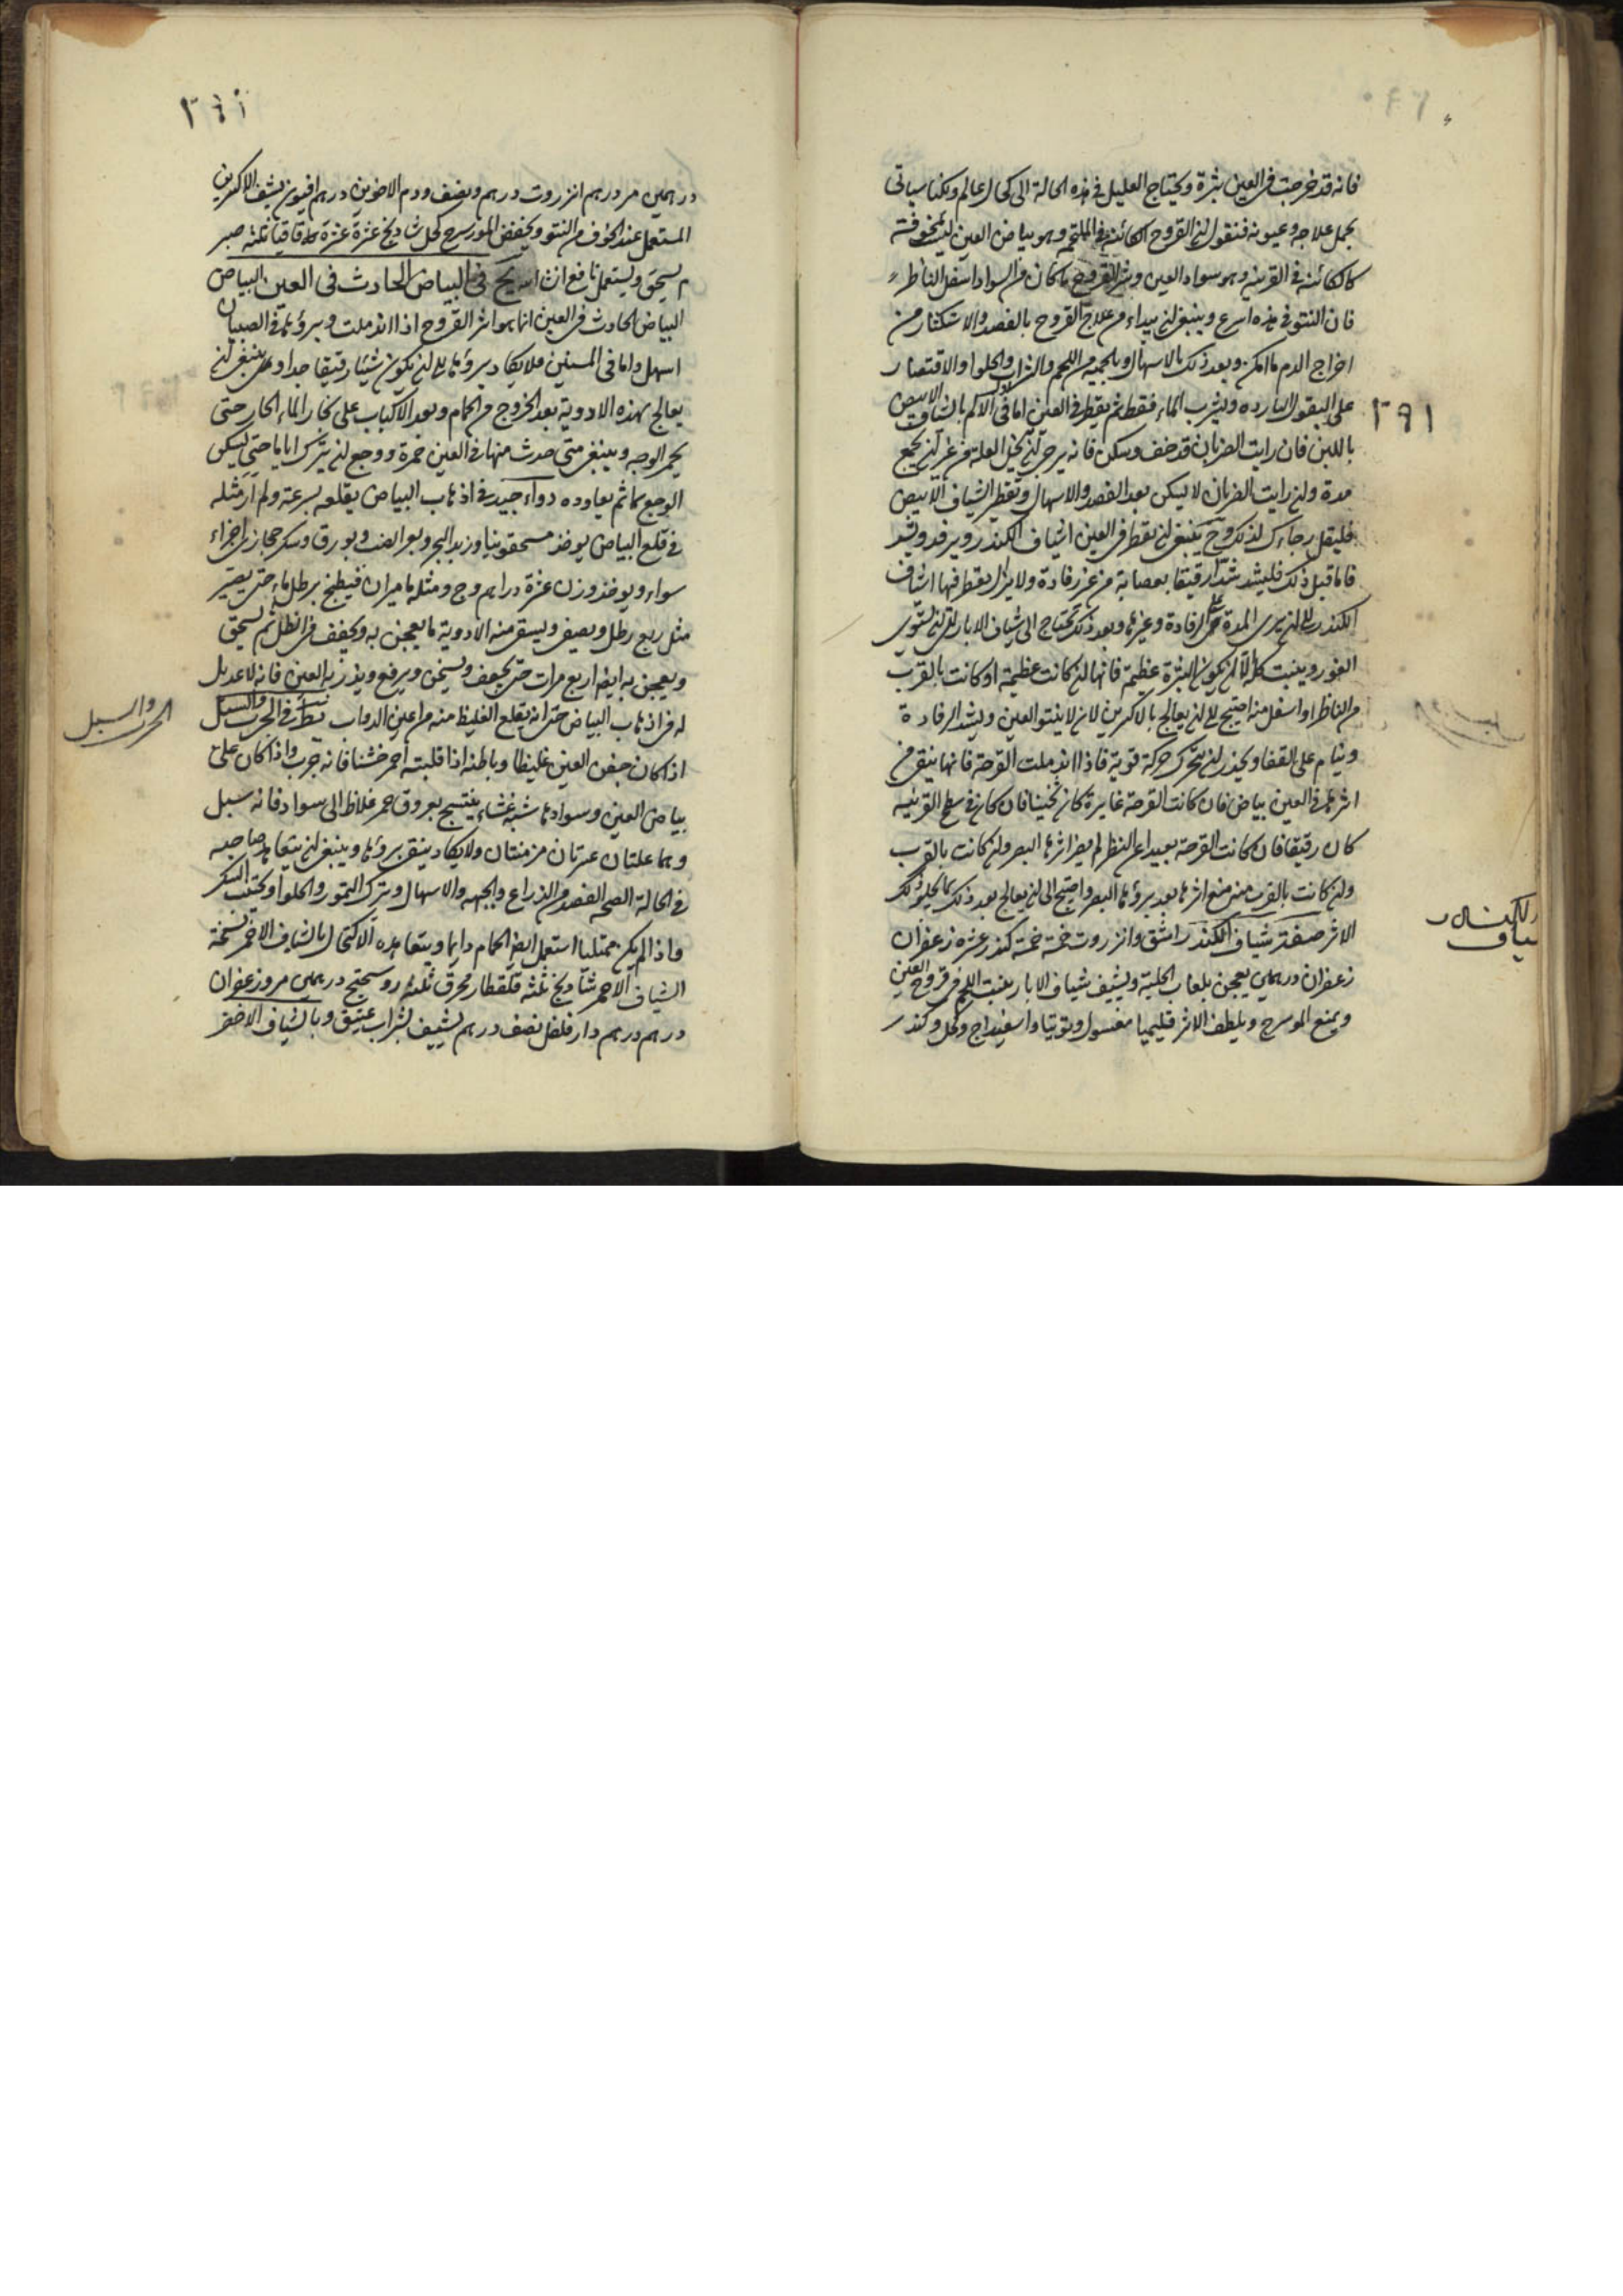 فانه قد خرجت في العين بثرة ويحتاج العليل في هذه الحالة الى كحال عالم ولكنا سياتي
بجمل علاجه وعيونه فنقول ان القروح الكائنة في الملتحم وهو بياض العين ليست بمخوفة
كالكائنة في القرنية وهو سواد العين وشر القروح ما كان في السواد اسفل الناظر
فان النتو في هذه اسرع وينبغي ان يبداء من علاج القروح بالفصد والاستكثار من
اخراج الدم ما امكن وبعد ذلك بالاسهال وبالحمية من اللحم والشراب والحلوا والاقتصار
على البقول الباردة وليشرب الماء فقط ثم يقطر في العين اما في الاكم بالشياف الابيض
باللبن فان رايت الضربان قد خف وسكن فانه يرجى ان تخيل العلة من غير ان يجمع
مدة وان رايت الضربان لا يسكن بعد الفصد والاسهال وتقطر الشياف الابيض
فليقل رجاءك لذلك وح ينبغي ان يقطر في العين اشياف الكندر ويرفد ويشد
فاما قبل ذلك فليشد شدا رقيقا بعصابة من غير رفادة ولا يزال يقطر فيها اشياف
الكندر الى ان يرى المدة على الرفادة وغيرها وبعد ذلك تحتاج الى شياف الابار الى ان يستوى
الغور وينبت الا ان يكون البثرة عظيمة فانها ان كانت عظيمة او كانت بالقرب
من الناظر او اسفل منه احتيج الى ان يعالج بالاكسرين لان لا ينتو العين ويشد الرفادة
وينام على القفا ويحذر ان يتحرك حركة قوية فاذا اندملت القرحة فانها يبقى من
اثرها في العين بياض فان كانت القرحة غايرة كان ثخينا فان كان في سطح القرنية
كان رقيقا فان كانت القرحة بعيدا عن النظر لم يضر اثرها البصر وان كانت بالقرب
وان كانت بالقرب منه منع اثرها بعد برؤها البصر واحتيج الى ان يعالج بعد ذلك بما يجلو ذلك
الاثر صفة شياف الكندر اشق وانزروت خمسة خمسة كندر عشرة زعفران
زعفران درهمين يعجن بلعاب الحلبة ويشيف شياف الابار ينبت اللحم في قروح العين
ويمنع المورسرج ويلطف الاثر قليميا مغسول وتوتيا واسفيداج وكحل وكندر
٢٩١
الكندر
شياف
درهمين مر درهم انزروت درهم ونصف ودم الاخوين درهم افيون يشف الاكسرين
المستعمل عند الخوف من النتو ويخفض المورسرج كحل شاديخ عشرة عشرة اقاقيا ثلثة صبر
م يسحق ويستعمل نافع انشاء الله في البياض الحادث في العين البياض
البياض الحادث في العين انما هو اثر القروح اذا اندملت وبروءها في الصبيان
اسهل واما في المسنين فلا يكاد يبروءها الا ان يكون شيئا رقيقا جدا وينبغي ان
يعالج بهذه الادوية بعد الخروج من الحمام وبعد الاكباب على بخار الماء الحار حتى
يحمر الوجه وينبغي متى حدث منها في العين حمرة ووجع ان يترك اياما حتى يسكن
الوجع ثم يعاوده دواء جيد في اذهاب البياض يقلعه بسرعة ولم ار مثله
في قلع البياض يوخذ مسحقونيا وزبد البحر وبعر الضب وبورق وسكر حجازى اجزاء
سواء ويوخذ وزن عشرة دراهم وج ومثله ماميران فيطبخ برطل ماء حتى يصير
مثل ربع رطل ويصفى ويسقى منه الادوية ما يعجن به ويجفف في الظل ثم يسحق
ويعجن به ايضا اربع مرات حتى يجفف ويسحق ويرفع ويذر به العين فانه لا عديل
له في اذهاب البياض حتى انه يقلع الغليظ منه من اعين الدواب في الجرب والسبل
اذا كان جفن العين غليظا وباطنه اذا قلبته احمر خشنا فانه جرب واذا كان على
بياض العين وسوادها شبه غشاء ينتسج بعروق حمر غلاظ الى سواد فانه سبل
وهما علتان عسرتان مزمنتان ولا يكاد ينقى بروءها وينبغي ان يتعاهد صاحبه
في الحالة الصحة الفصد من الذراع والجبهة والاسهال وترك التمور والحلوا ويجتنب السكر
واذا لم يكن ممتليا استعمل ايضا الحمام دايما ويتعاهده الاكتحال بالشياف الاحمر نسخة
الشياف الاحمر شاديخ ثلثة قلقطار محرق ثلثة روسختج درهمين مر وزعفران
درهم درهم دار فلفل نصف درهم يشيف بشراب عتيق وبالشياف الاخضر
الجرب والسبل